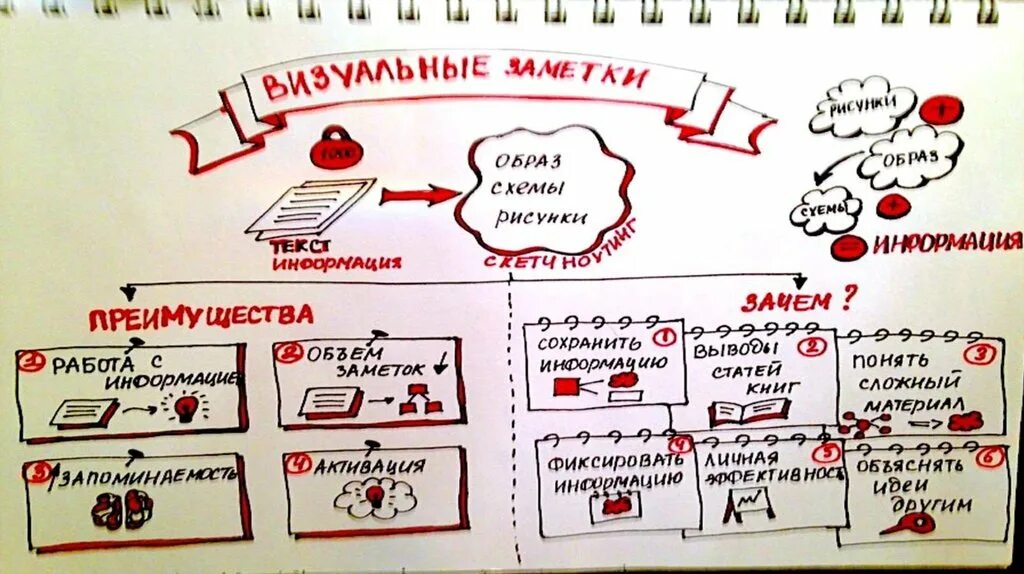 ВИЗУАЛЬНЫЕ ЗАМЕТКИ
1000
ТЕКСТ
ИНФОРМАЦИЯ
ОБРАЗ
СХЕМЫ
РИСУНКИ
СКЕТЧНОУТИНГ
РИСУНКИ
+
ОБРАЗ
+
СХЕМЫ
=
ИНФОРМАЦИЯ
ПРЕИМУЩЕСТВА
1
РАБОТА С
ИНФОРМАЦИЕЙ
2
ОБЪЕМ
ЗАМЕТОК
3
ЗАПОМИНАЕМОСТЬ
4
АКТИВАЦИЯ
ЗАЧЕМ?
1
СОХРАНИТЬ
ИНФОРМАЦИЮ
2
ВЫВОДЫ
СТАТЕЙ
КНИГ
3
ПОНЯТЬ
СЛОЖНЫЙ
МАТЕРИАЛ
4
ФИКСИРОВАТЬ
ИНФОРМАЦИЮ
5
ЛИЧНАЯ
ЭФФЕКТИВНОСТЬ
6
ОБЪЯСНЯТЬ
ИДЕИ
ДРУГИМ